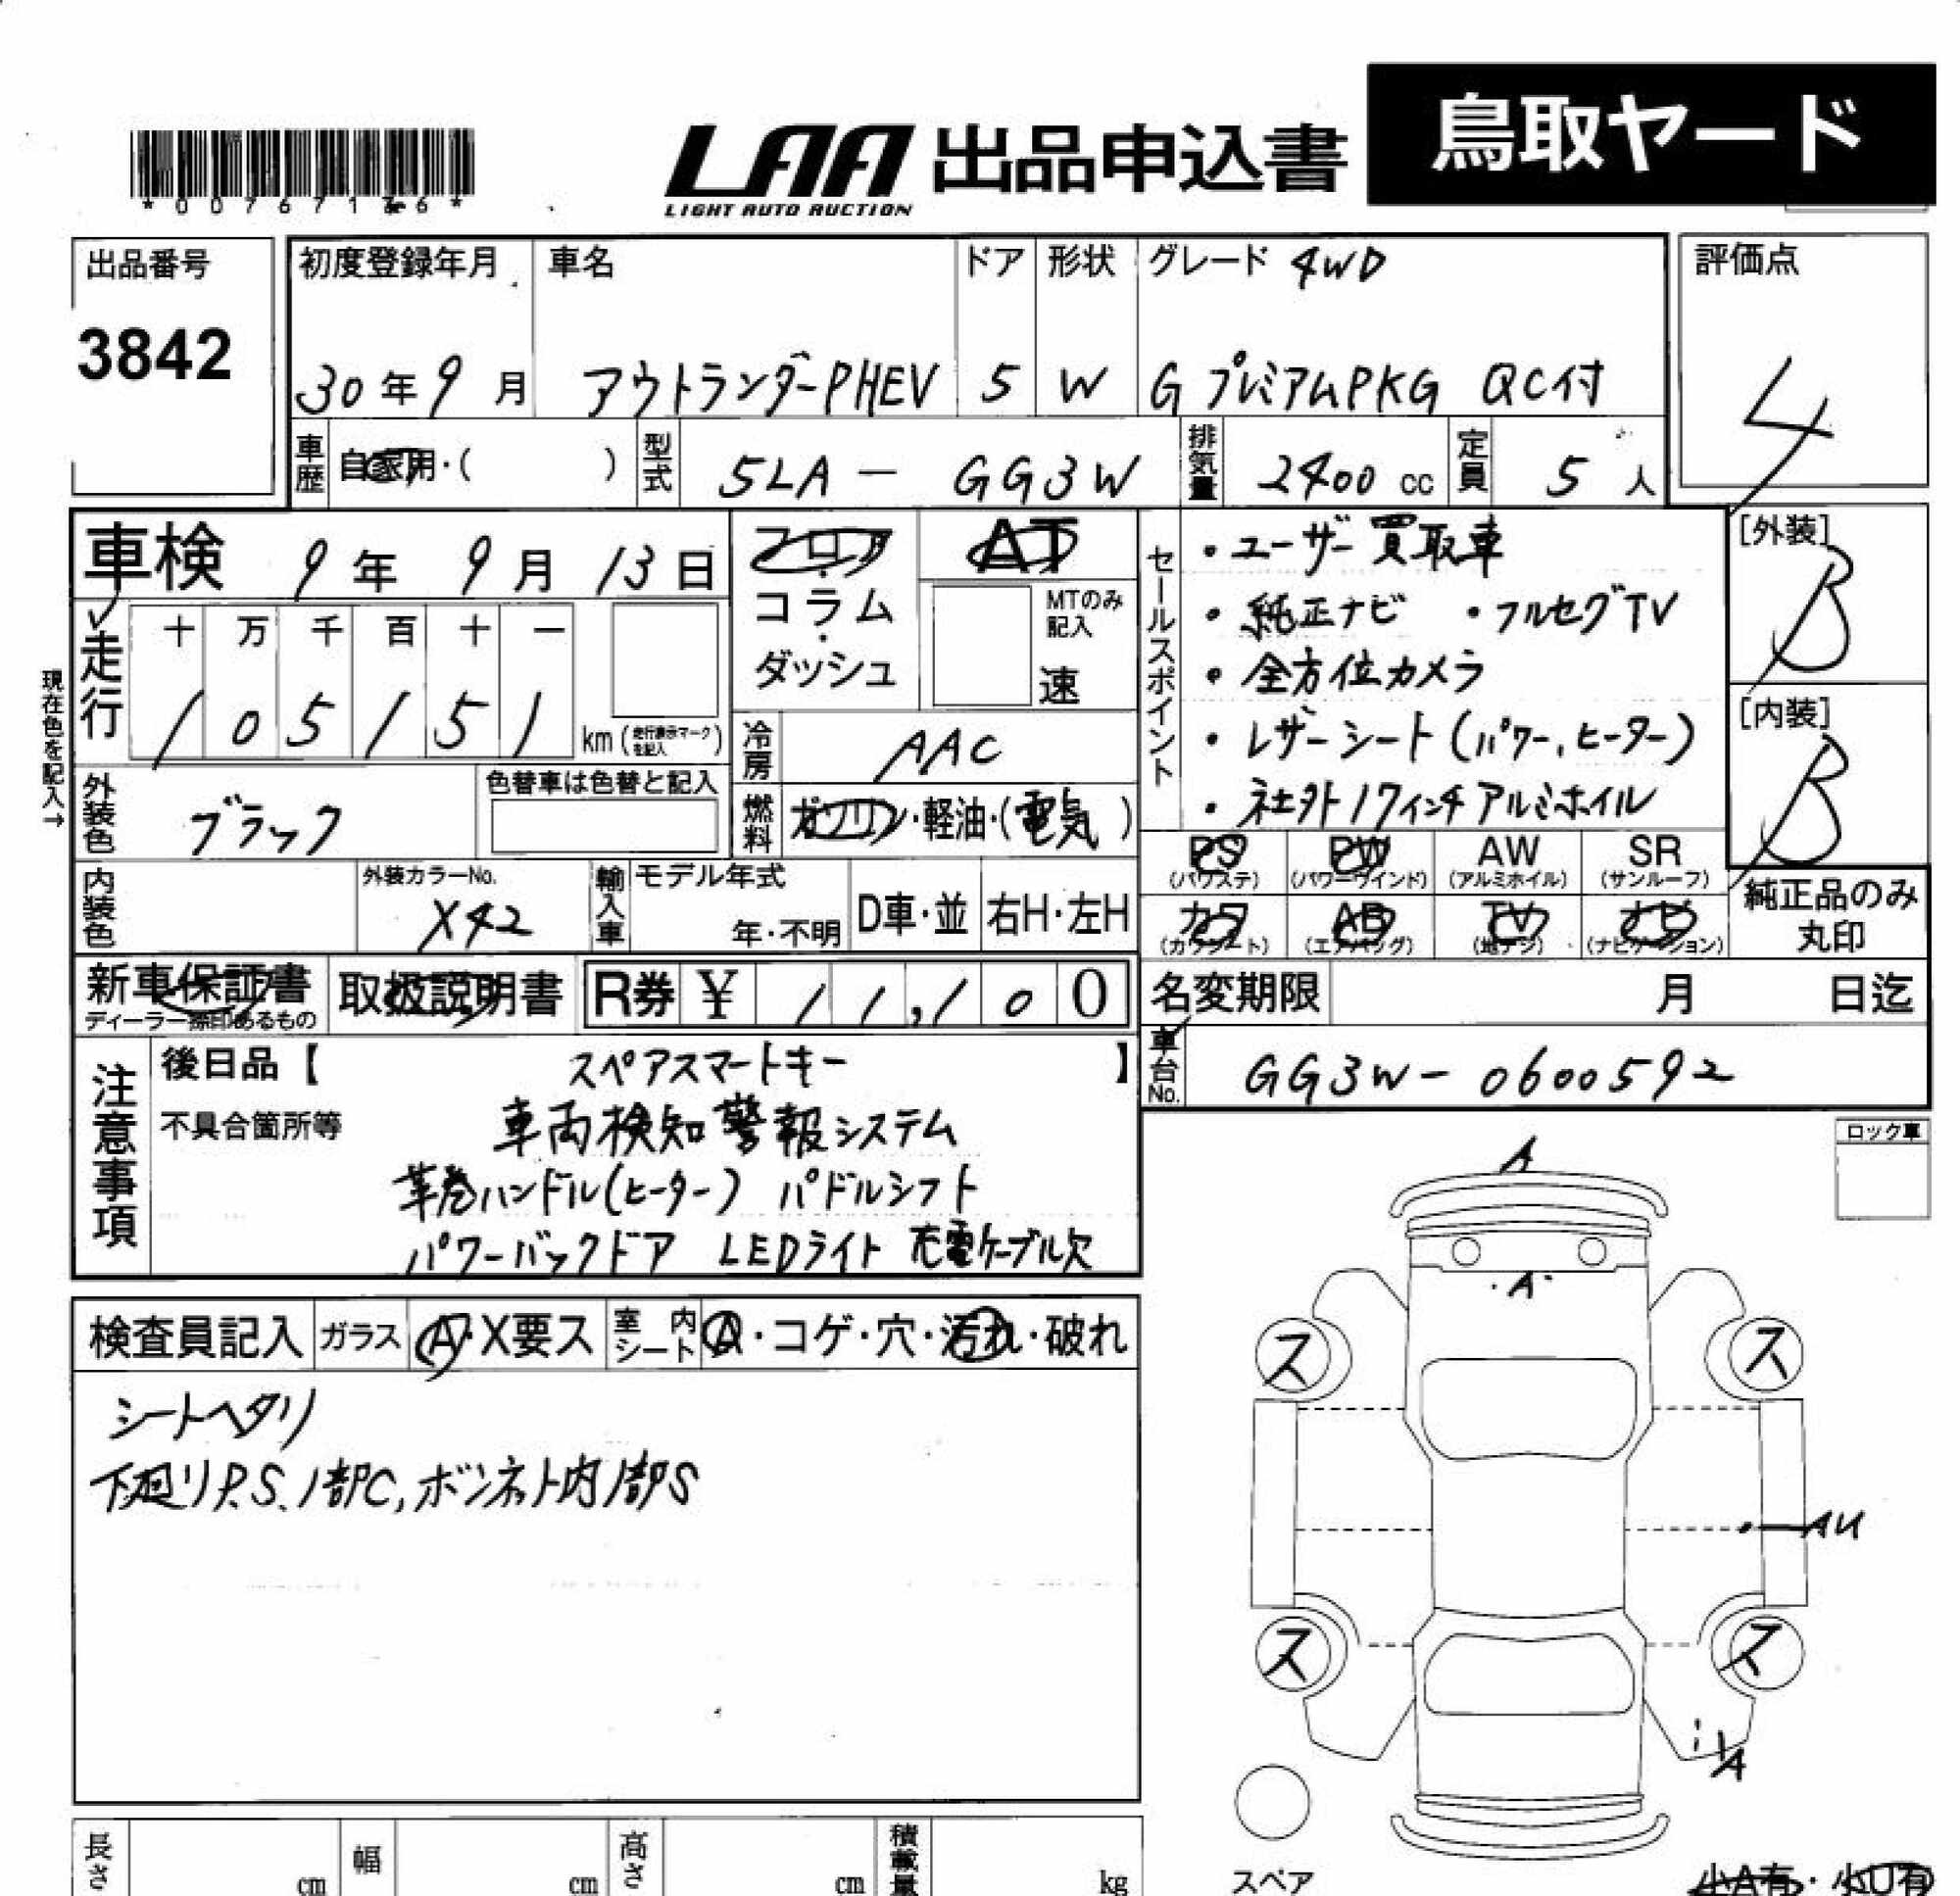 鳥取ヤード
LAA 出品申込書
LIGHT AUTO AUCTION
出品番号
3842
初度登録年月
30年9月
車名
アウトランダーPHEV
ドア
5
形状
W
グレード 4WD
GプレミアムPKG QC付
評価点
4
車歴 自家用・( )
型式 5LA - GG3W
排気量 2400 cc
定員 5 人
車検 9年 9月 13日
フロア・コラム・ダッシュ
AT
MTのみ記入
速
走行
十 万 千 百 十 一
1 0 5 1 5 1 km (走行表示マークを記入)
現在色を記入→
冷房 AAC
外装色 ブラック
色替車は色替と記入
燃料 ガソリン・軽油・(電気)
内装色
外装カラーNo.
X42
輸入車
モデル年式
年・不明
D車・並
右H・左H
セールスポイント
・ユーザー買取車
・純正ナビ ・フルセグTV
・全方位カメラ
・レザーシート(パワー,ヒーター)
・社外17インチアルミホイル
[外装]
B
[内装]
B
PS (パワステ)
PW (パワーウインド)
AW (アルミホイル)
SR (サンルーフ)
カワ (カワシート)
AB (エアバッグ)
TV (地デジ)
ナビ (ナビゲーション)
純正品のみ丸印
新車保証書
ディーラー捺印あるもの
取扱説明書
R券 ¥ 11,100
名変期限 月 日迄
車台No. GG3W-0600592
注意事項
後日品【 スペアスマートキー 】
不具合箇所等
車両検知警報システム
革巻ハンドル(ヒーター) パドルシフト
パワーバックドア LEDライト 充電ケーブル欠
ロック車
検査員記入
ガラス A・X要ス
室内シート A・コゲ・穴・汚れ・破れ
シートヘタリ
下廻りP.S、1部C,ボンネット内1部S
A
A
ス
ス
AU
ス
ス
A
スペア
小A有・小U有
長さ cm
幅 cm
高さ cm
積載量 kg